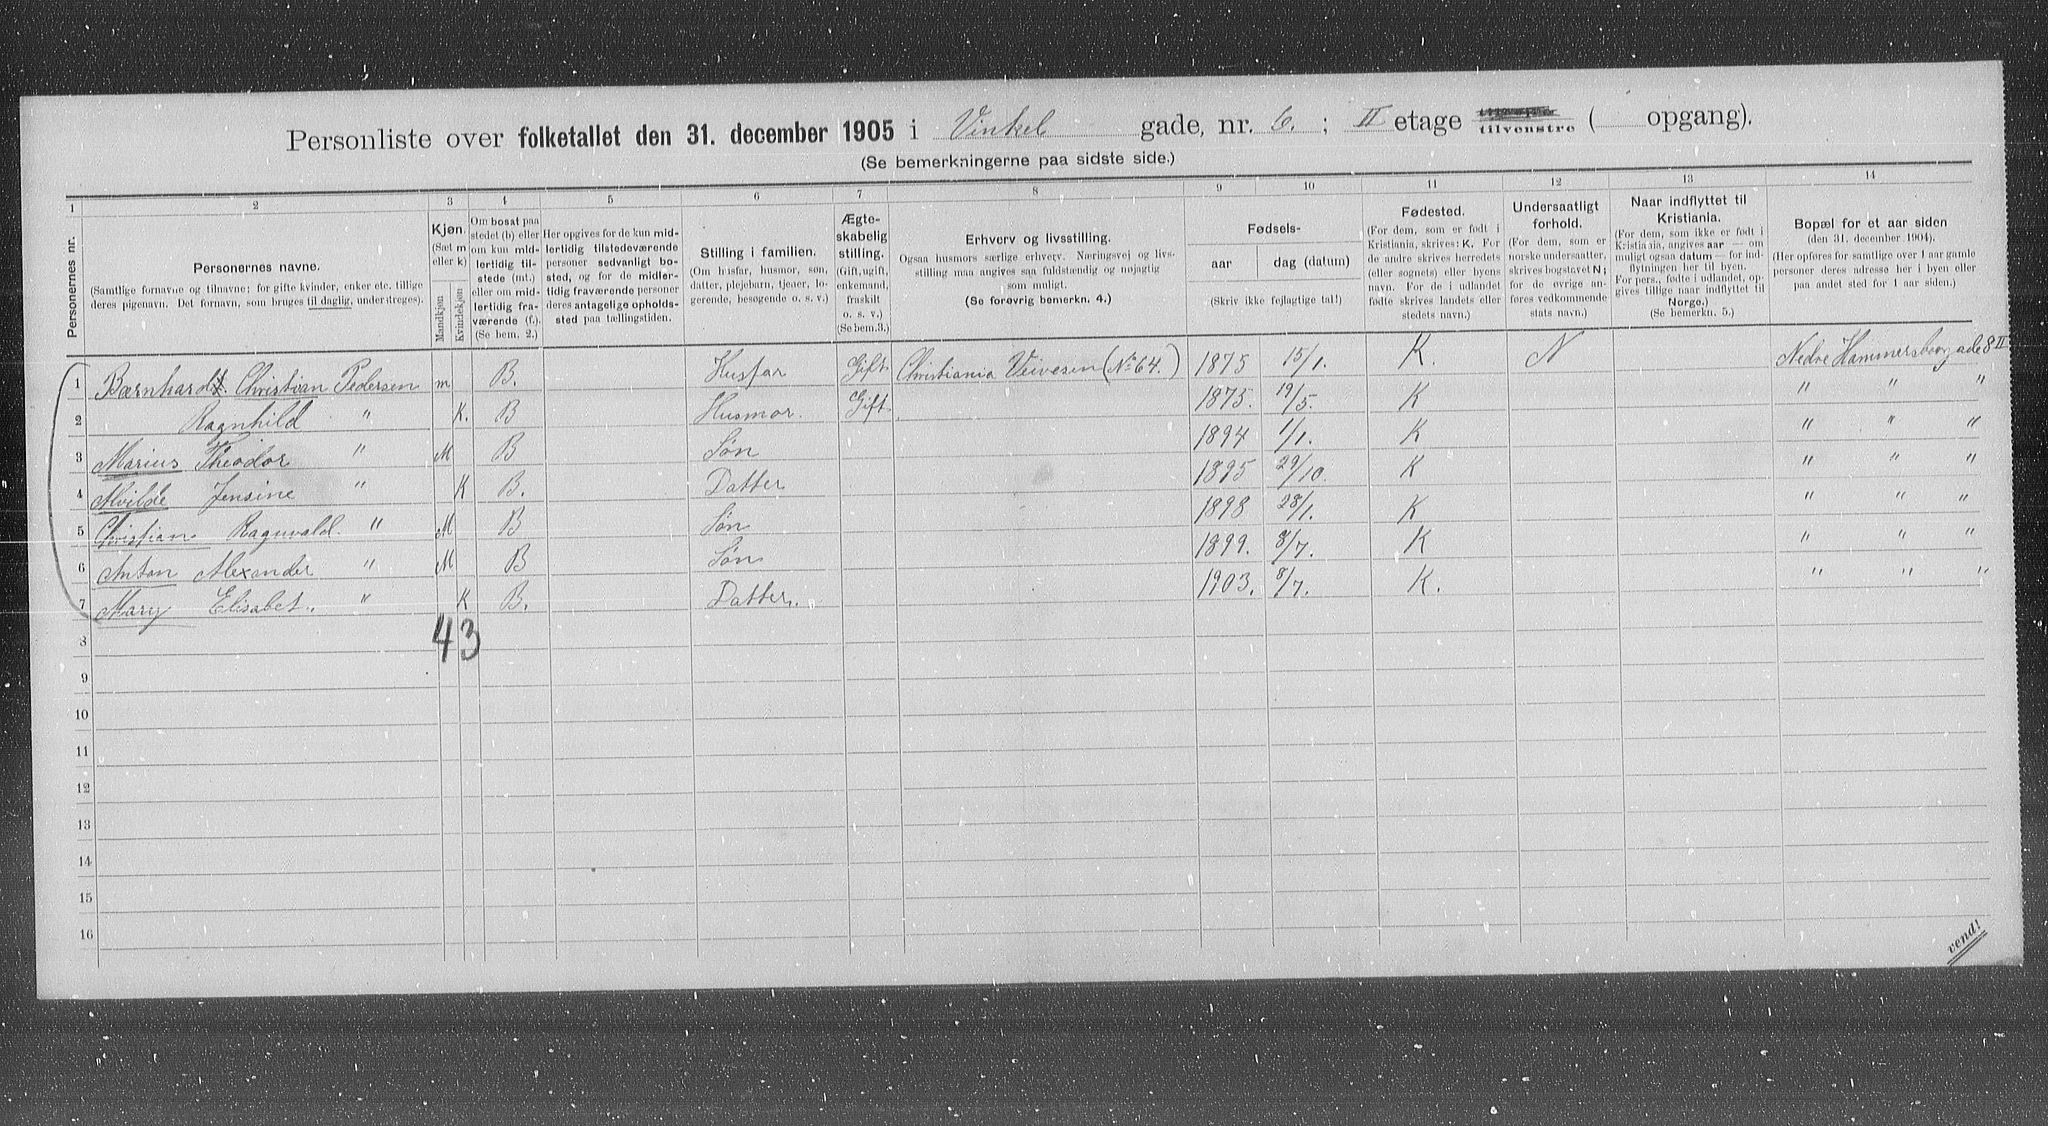 Personliste over folketallet den 31. december 1905 i Vinkel gade, nr. 6. ; II etage tilvenstre ( opgang).
(Se bemerkningerne paa sidste side.)
1 2 3 4 5 6 7 8 9 10 11 12 13 14
Personernes nr.
Personernes navne.
(Samtlige fornavne og tilnavne; for gifte kvinder, enker etc. tillige
deres pigenavn. Det fornavn, som bruges til daglig, understreges).
Kjøn.
(Sæt m
eller k)
Mandkjøn
Kvindekjøn
Om bosat paa
stedet (b) eller
om kun mid-
lertidig til-
stede (mt.)
eller om mid-
lertidig fra-
værende (f.).
(Se bem. 2.)
Her opgives for de kun mid-
lertidig tilstedeværende
personer sedvanligt bo-
sted, og for de midler-
tidig fraværende personer
deres antagelige opholds-
sted paa tællingstiden.
Stilling i familien.
(Om husfar, husmor, søn,
datter, plejebarn, tjener, lo-
gerende, besøgende o. s. v.)
Ægte-
skabelig
stilling.
(Gift, ugift,
enkemand,
fraskilt
o. s. v.)
(Se bem.3.)
Erhverv og livsstilling.
Ogsaa husmors særlige erhverv. Næringsvej og livs-
stilling maa angives saa fuldstændig og nøjagtig
som muligt.
(Se forøvrig bemerkn. 4.)
Fødsels-
aar dag (datum)
(Skriv ikke fejlagtige tal!)
Fødested.
(For dem, som er født i
Kristiania, skrives: K. For
de andre skrives herredets
(eller sognets) eller byens
navn. For de i udlandet
fødte skrives landets eller
stedets navn.)
Undersaatligt
forhold.
(For dem, som er
norske undersaatter,
skrives bogstavet N;
for de øvrige an-
føres vedkommende
stats navn.)
Naar indflyttet til
Kristiania.
(For dem, som ikke er født i
Kristiania, angives aar — om
muligt ogsaa datum — for ind-
flytningen her til byen.
For pers., fødte i udlandet, op-
gives tillige naar indflyttet til
Norge.)
(Se bemerkn. 5.)
Bopæl for et aar siden
(den 31. december 1904).
(Her opføres for samtlige over 1 aar gamle
personer deres adresse her i byen eller
paa andet sted for 1 aar siden.)
1 Bærnhardt Christian Pedersen m B. Husfar Gift Christiania Veivesen (No 64.) 1875 15/1. K. N Nedre Hammersborggade 8 II
2 Ragnhild " K. B Husmor. Gift 1875. 19/5. K " " "
3 Marius Theodor " M B Søn 1894 1/1. K " " "
4 Alvilde Jensine " K B. Datter 1895 29/10. K " " "
5 Christian Ragnvald. " M B Søn 1898 28/1. K " " "
6 Anton Alexander " M B Søn 1899. 8/7. K " " "
7 Mary Elisabet. " K B. Datter. 1903. 8/7. K. " " "
8 4 3
9
10
11
12
13
14
15
16
vend!